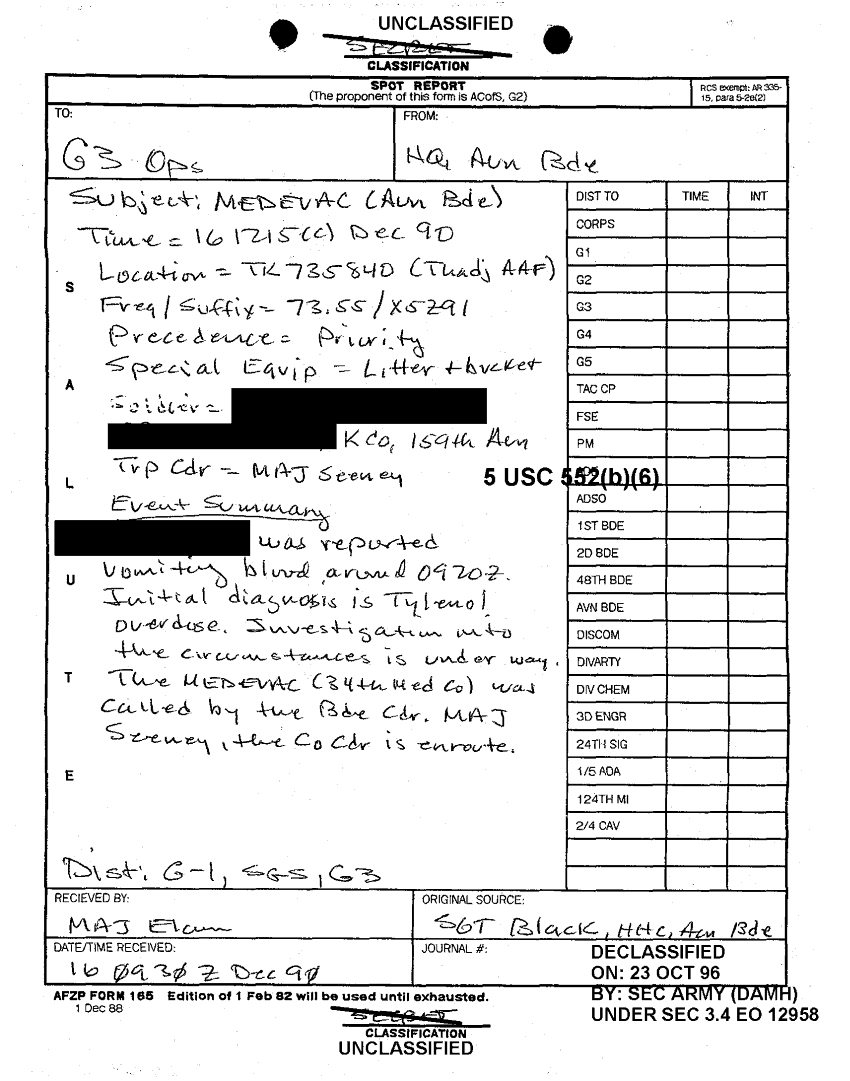 UNCLASSIFIED
SECRET
CLASSIFICATION
SPOT REPORT
(The proponent of this form is ACofS, G2)
RCS exempt: AR 335-
15, para 5-2e(2)
TO:
G3 Ops
FROM:
HQ, Avn Bde
Subject: MEDEVAC (Avn Bde)
Time = 161215(C) Dec 90
Location = TK735840 (Thadj AAF)
Freq/Suffix = 73.55/X5Z91
Precedence = Priority
Special Equip = Litter + bucket
Soldier =
K Co, 159th Avn
Trp Cdr = MAJ Seeney
5 USC 552(b)(6)
Event Summary
was reported
vomiting blood around 0920Z.
Initial diagnosis is Tylenol
overdose. Investigation into
the circumstances is under way.
The MEDEVAC (34th Med Co) was
called by the Bde Cdr. MAJ
Seeney, the Co Cdr is enroute.
Dist: G-1, SGS, G3
S
A
L
U
T
E
DIST TO TIME INT
CORPS
G1
G2
G3
G4
G5
TAC CP
FSE
PM
ADSO
1ST BDE
2D BDE
48TH BDE
AVN BDE
DISCOM
DIVARTY
DIV CHEM
3D ENGR
24TH SIG
1/5 ADA
124TH MI
2/4 CAV
RECIEVED BY:
MAJ
ORIGINAL SOURCE:
SGT Black, HHC, Avn Bde
DATE/TIME RECEIVED:
16 0930 Z Dec 90
JOURNAL #:
DECLASSIFIED
ON: 23 OCT 96
BY: SEC ARMY (DAMH)
UNDER SEC 3.4 EO 12958
AFZP FORM 165 Edition of 1 Feb 82 will be used until exhausted.
1 Dec 88
SECRET
CLASSIFICATION
UNCLASSIFIED